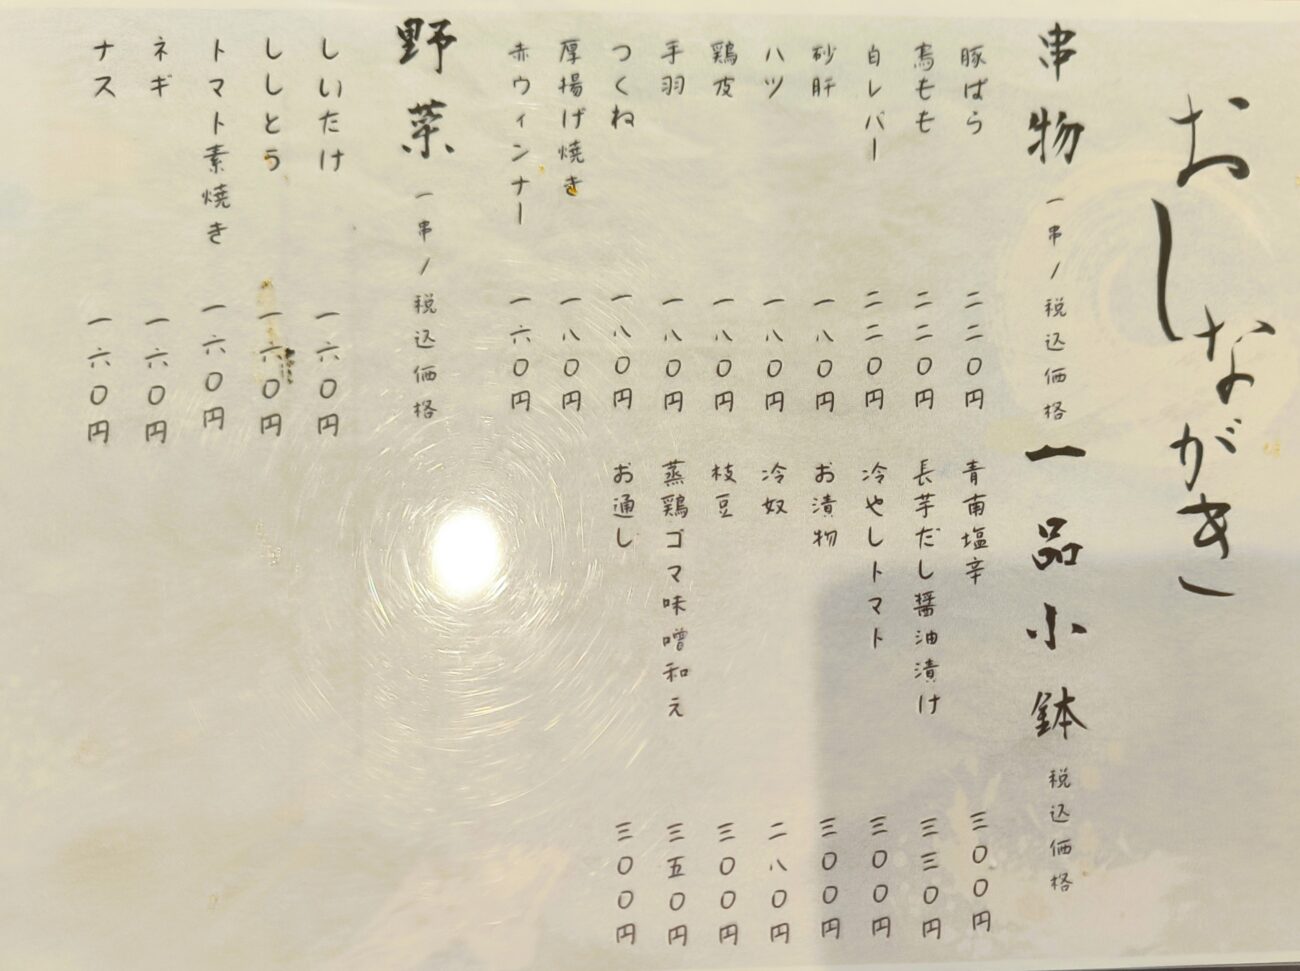 おしながき
串物 一串/税込価格
豚ばら 二二〇円
鳥もも 二二〇円
白レバー 二二〇円
砂肝 一八〇円
ハツ 一八〇円
鶏皮 一八〇円
手羽 一八〇円
つくね 一八〇円
厚揚げ焼き 一八〇円
赤ウィンナー 一六〇円
野菜 一串/税込価格
しいたけ 一六〇円
ししとう 一六〇円
トマト素焼き 一六〇円
ネギ 一六〇円
ナス 一六〇円
一品小鉢 税込価格
青南塩辛 三〇〇円
長芋だし醤油漬け 三三〇円
冷やしトマト 三〇〇円
お漬物 三〇〇円
冷奴 二八〇円
枝豆 三〇〇円
蒸鶏ゴマ味噌和え 三五〇円
お通し 三〇〇円